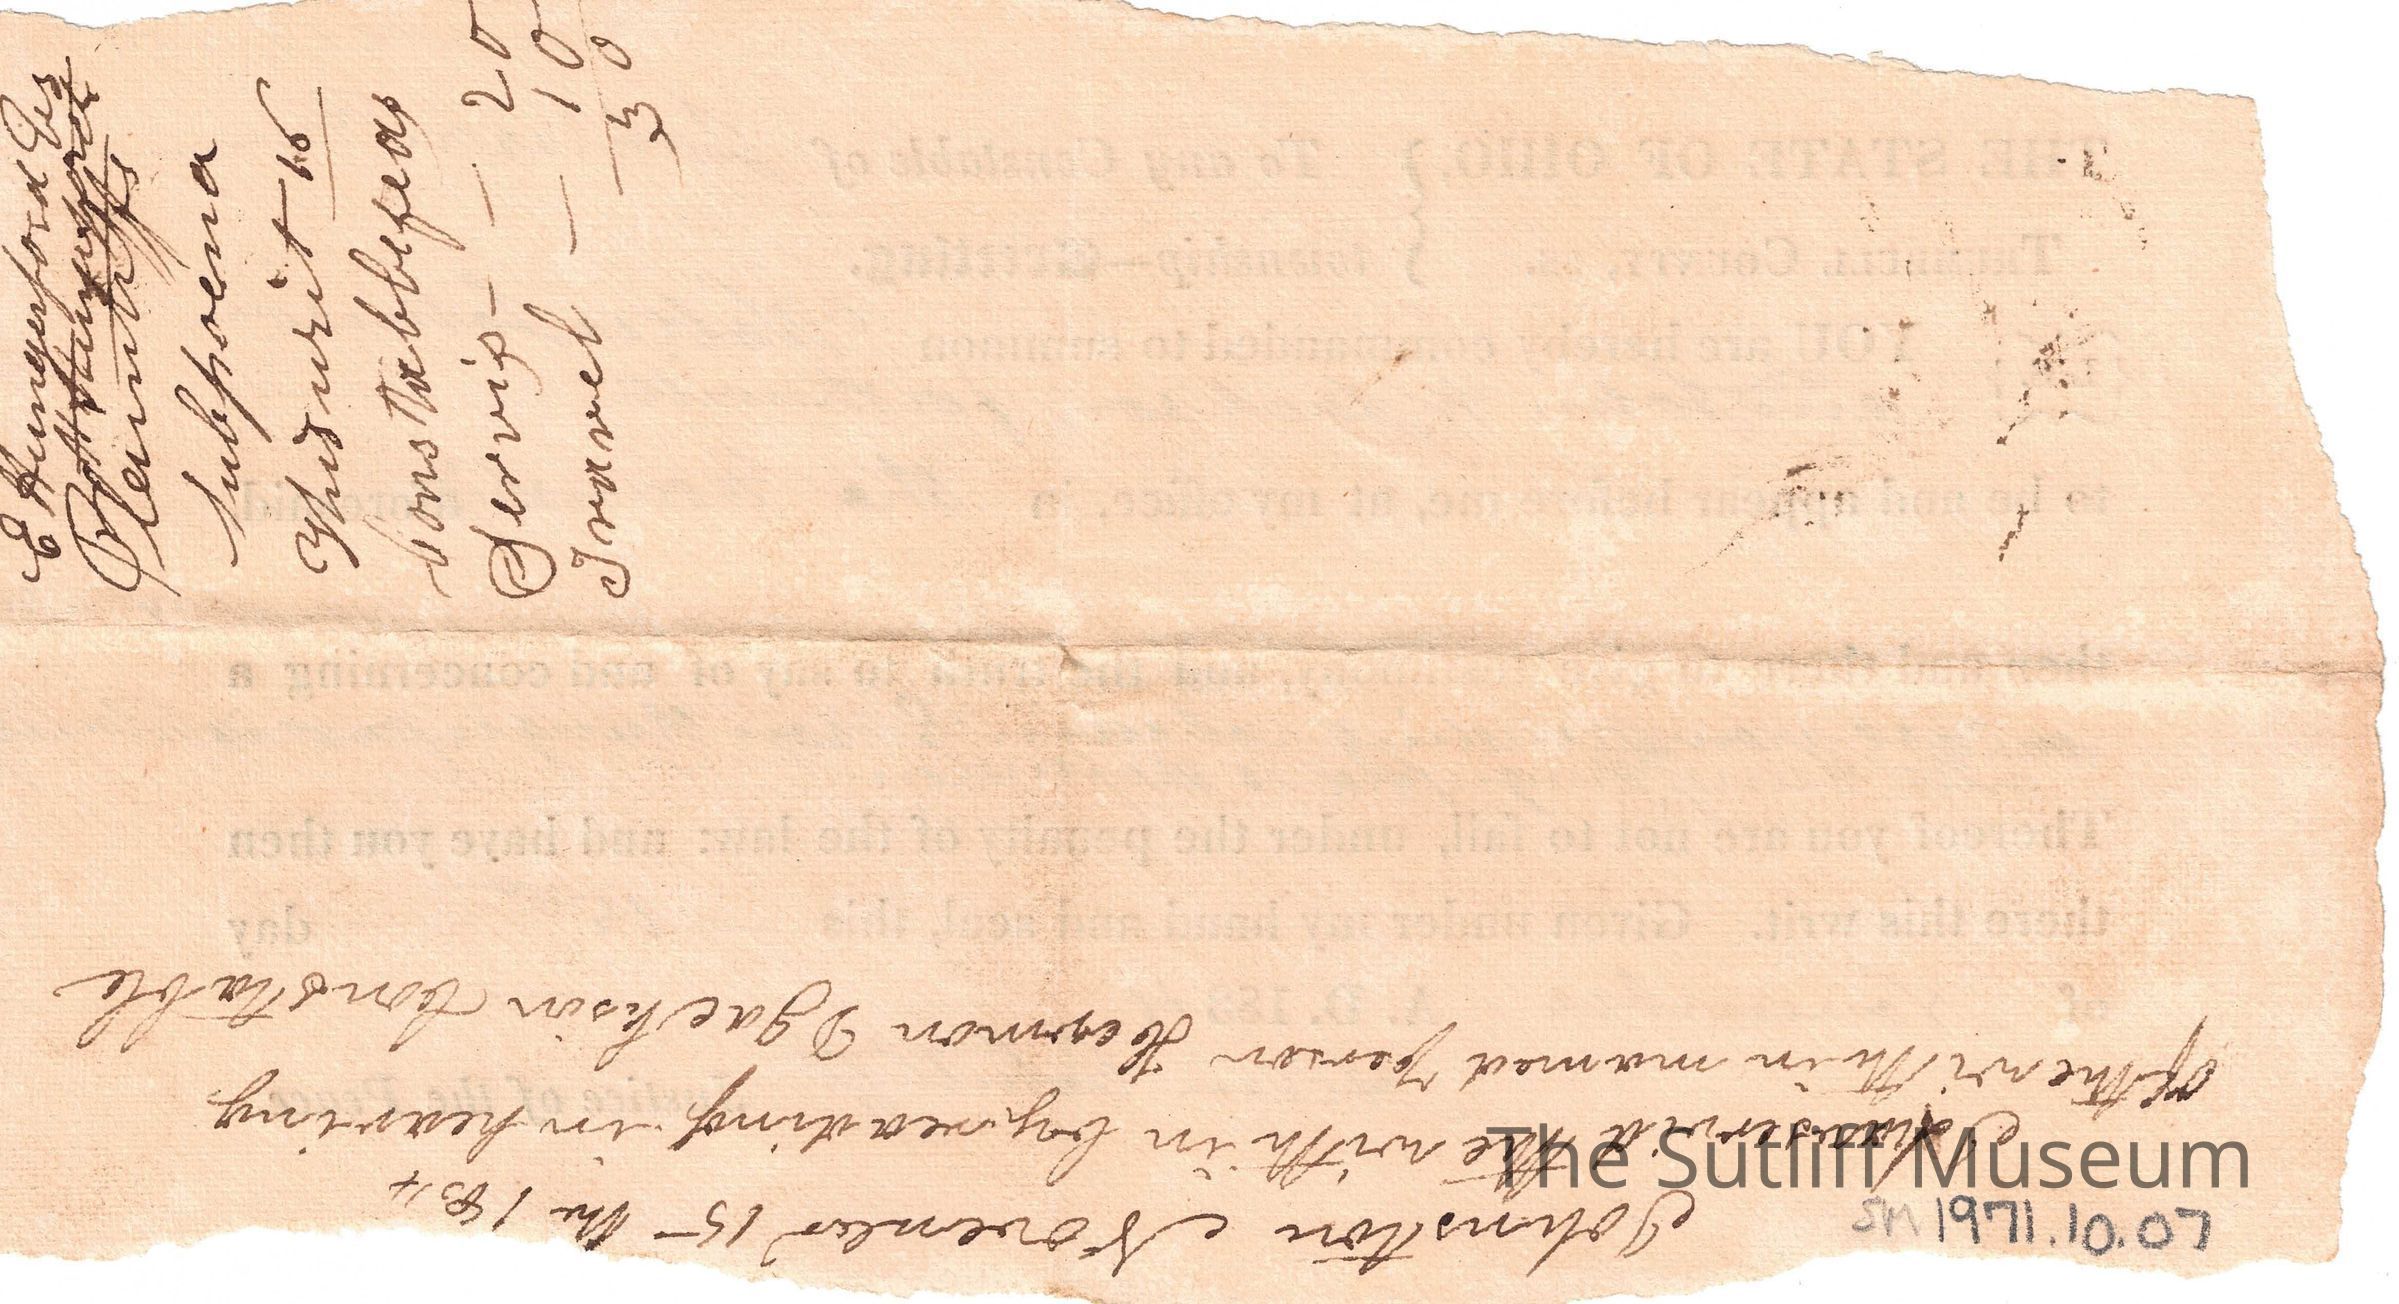 E Hungerford Es
E Hungerford
Plaintiffs
Subpoena
This writ 16
Constable feas
Servis — 20
Travel — 10
30
Johnston November 15 the 1834
I have servid the with in by reading in hearing
of the with in named person Harmon D Jackson Constable
THE STATE OF OHIO, } To any Constable of
TRUMBULL COUNTY, ss. } township—Greeting.
YOU are hereby commanded to summon
to be and appear before me, at my office, in
then and there to give testimony, and the truth to say of and concerning a
Thereof you are not to fail, under the penalty of the law: and have you then
there this writ. Given under my hand and seal, this day
of A. D. 183
Justice of the Peace.
The Sutliff Museum
SM 1971.10.07